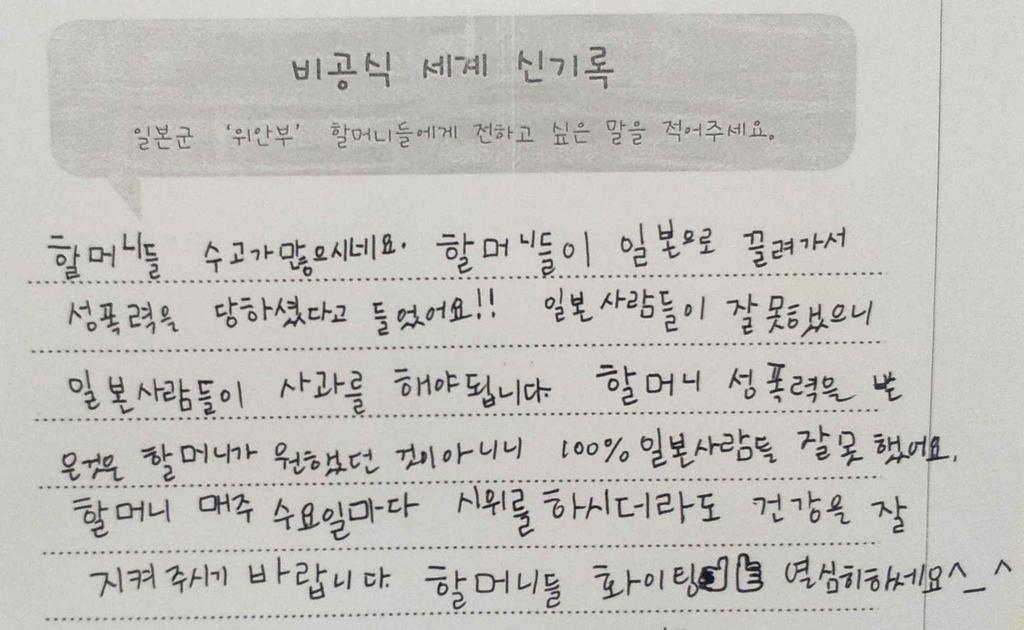 비공식 세계 신기록
일본군 '위안부' 할머니들에게 전하고 싶은 말을 적어주세요.
할머니들 수고가많으시네요. 할머니들이 일본으로 끌려가서
성폭력을 당하셨다고 들었어요!! 일본사람들이 잘못했으니
일본사람들이 사과를 해야됩니다. 할머니 성폭력을 받
은것은 할머니가 원했던 것이아니니 100% 일본사람들 잘못했어요.
할머니 매주 수요일마다 시위를 하시더라도 건강을 잘
지켜주시기 바랍니다. 할머니들 화이팅 열심히하세요^_^